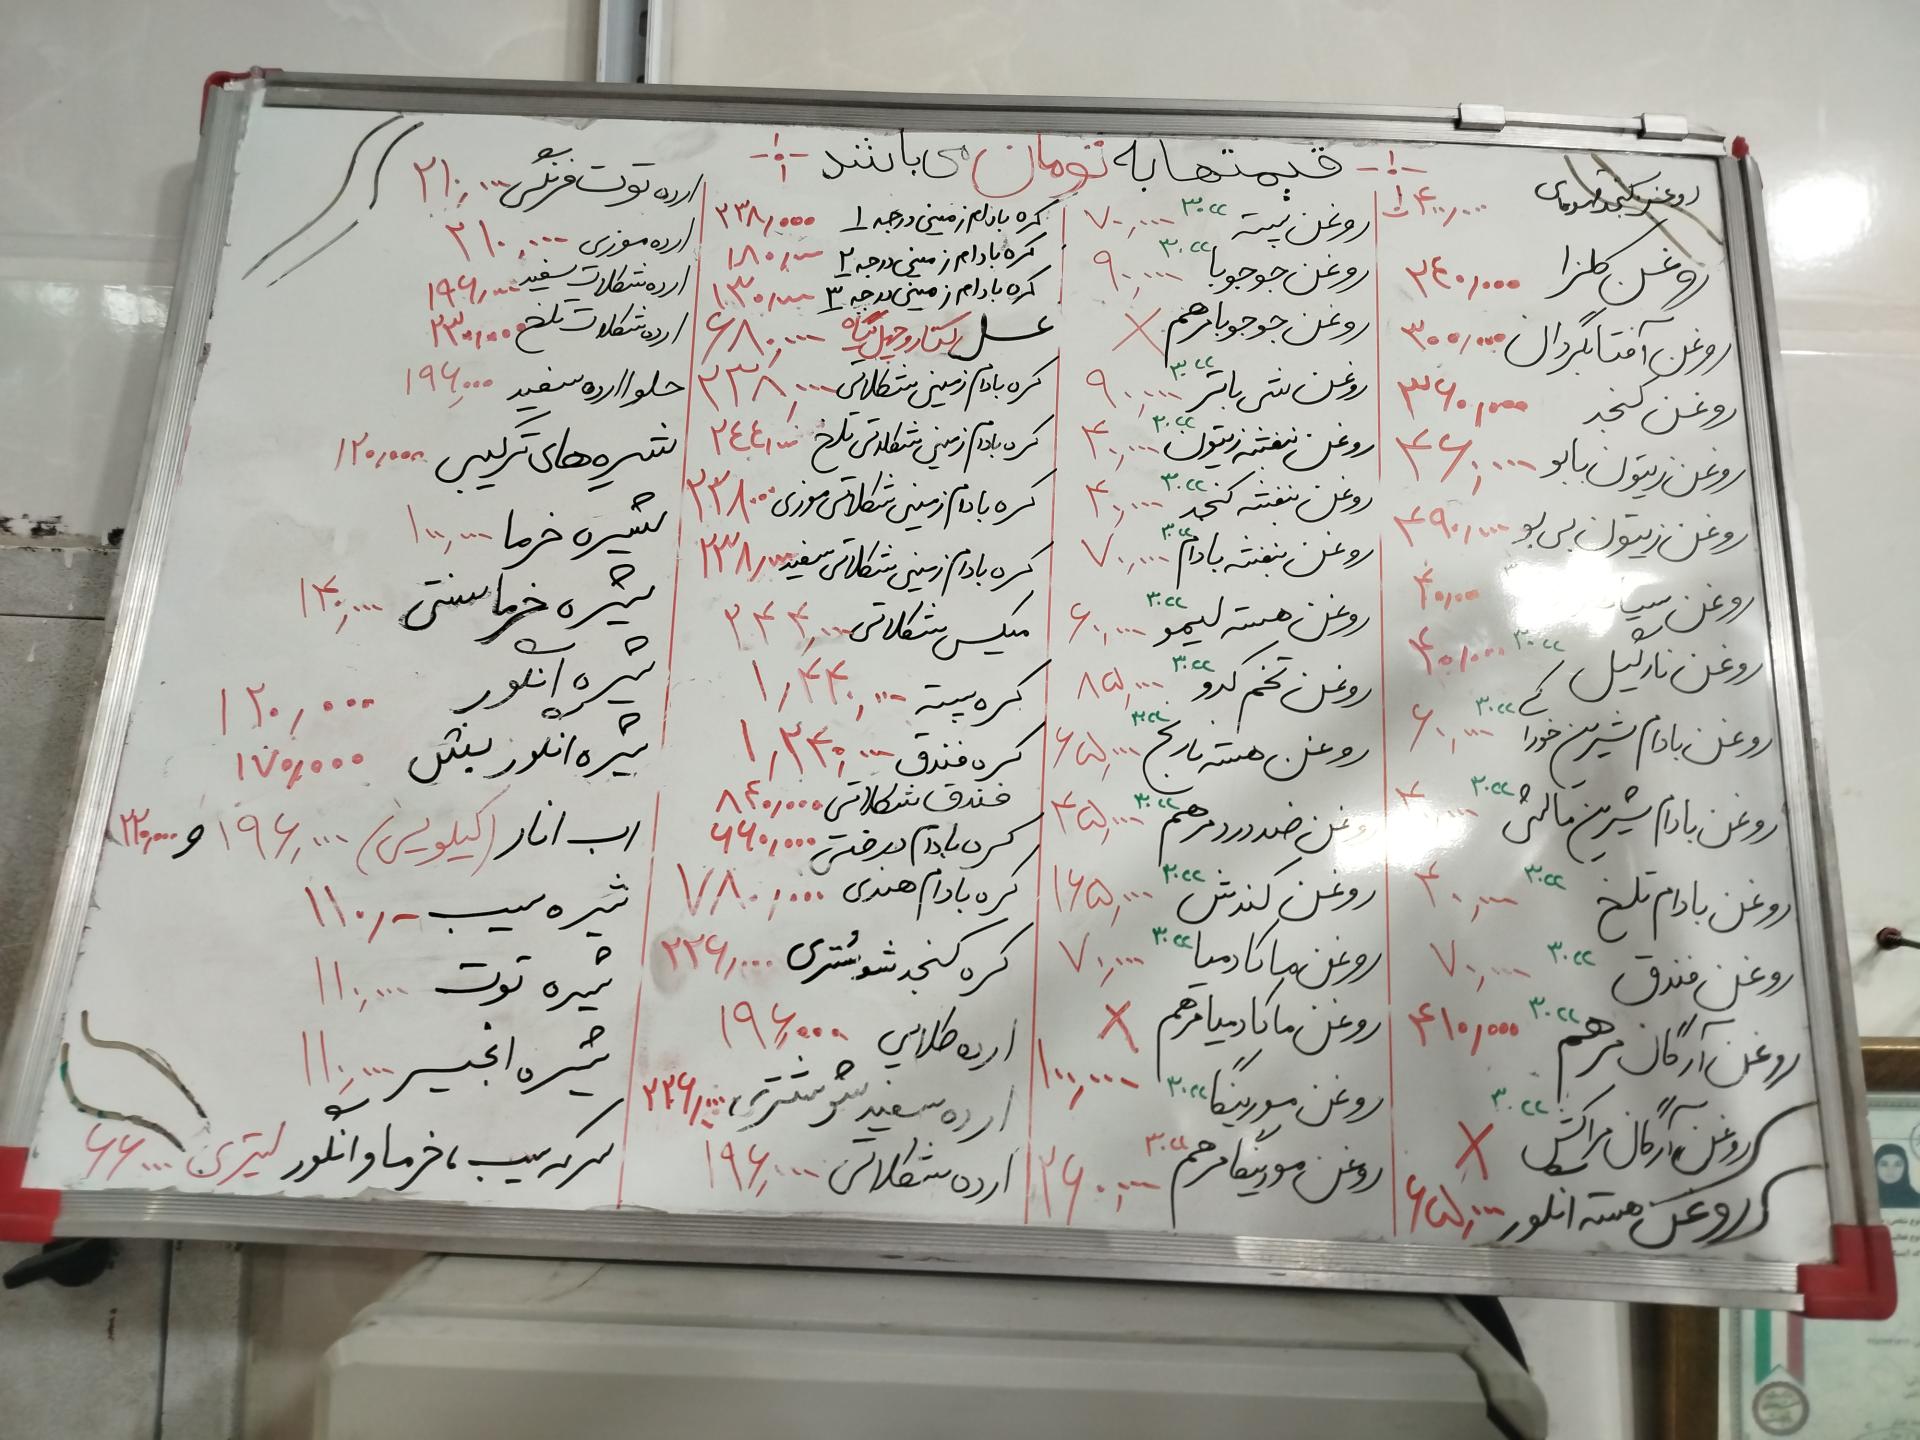 قیمتها به تومان می باشند
روغن کنجد ۴۰۰,۰۰۰
روغن کلزا ۲٤۰,۰۰۰
روغن آفتابگردان ۳۰۰,۰۰۰
روغن کنجد ۳۶۰,۰۰۰
روغن زیتون بابو ۴۶۰,۰۰۰
روغن زیتون بی بو ۴۹۰,۰۰۰
روغن ۴۰,۰۰۰
روغن نارگیل ۳۰cc ۴۰,۰۰۰
روغن بادام شیرین خوراکی ۳۰cc ۶۰,۰۰۰
روغن بادام شیرین مالشی ۳۰cc
روغن بادام تلخ ۳۰cc ۴۰,۰۰۰
روغن فندق ۳۰cc ۷۰,۰۰۰
روغن آرگان مرهم ۳۰cc ۴۱۰,۰۰۰
روغن آرگان مراکش ۳۰cc X
روغن هسته انگور ۶۵,۰۰۰
روغن پسته ۳۰cc ۷۰,۰۰۰
روغن جوجوبا ۳۰cc ۹۰,۰۰۰
روغن جوجوبا مرهم X
روغن شی باتر ۳۰cc ۹۰,۰۰۰
روغن بنفشه زیتون ۳۰cc ۴۰,۰۰۰
روغن بنفشه کنجد ۳۰cc ۴۰,۰۰۰
روغن بنفشه بادام ۳۰cc ۷۰,۰۰۰
روغن هسته لیمو ۳۰cc ۶۰,۰۰۰
روغن تخم کدو ۳۰cc ۸۵,۰۰۰
روغن هسته نارنج ۳۰cc ۶۵,۰۰۰
روغن ضد درد مرهم ۳۰cc ۴۵,۰۰۰
روغن کندش ۳۰cc ۱۶۵,۰۰۰
روغن ماکادمیا ۳۰cc ۷۰,۰۰۰
روغن ماکادمیا مرهم X
روغن مورینگا ۳۰cc ۱۰۰,۰۰۰
روغن مورینگا مرهم ۳۰cc ۲۶۰,۰۰۰
کره بادام زمینی درجه ۱ ۲۳۸,۰۰۰
کره بادام زمینی درجه ۲ ۱۸۰,۰۰۰
کره بادام زمینی درجه ۳ ۱۳۰,۰۰۰
عسل کنار و چهل گیاه ۶۸۰,۰۰۰
کره بادام زمینی شکلاتی ۲۳۸,۰۰۰
کره بادام زمینی شکلاتی تلخ ۲٤٤,۰۰۰
کره بادام زمینی شکلاتی موزی ۲۳۸,۰۰۰
کره بادام زمینی شکلاتی سفید ۲۳۸,۰۰۰
میکس شکلاتی ۲۴۴,۰۰۰
کره پسته ۱,۴۴۰,۰۰۰
کره فندق ۱,۲۴۰,۰۰۰
فندق شکلاتی ۸۴۰,۰۰۰
کره بادام درختی ۶۶۰,۰۰۰
کره بادام هندی ۷۸۰,۰۰۰
کره کنجد شوشتری ۲۲۶,۰۰۰
ارده طلایی ۱۹۶,۰۰۰
ارده سفید شوشتر ۲۲۶,۰۰۰
ارده شکلاتی ۱۹۶,۰۰۰
ارده توت فرنگی ۲۱۰,۰۰۰
ارده موزی ۲۱۰,۰۰۰
ارده شکلات سفید ۱۹۶,۰۰۰
ارده شکلات تلخ ۲۳۰,۰۰۰
حلوا ارده سفید ۱۹۶,۰۰۰
شیره های ترکیبی ۱۲۰,۰۰۰
شیره خرما ۱۰۰,۰۰۰
شیره خرما سنتی ۱۴۰,۰۰۰
شیره انگور ۱۲۰,۰۰۰
شیره انگور بنش ۱۷۰,۰۰۰
اب انار (کیلویی) ۱۹۶,۰۰۰ و ۲۲۰,۰۰۰
شیره سیب ۱۱۰,۰۰۰
شیره توت ۱۱۰,۰۰۰
شیره انجیر ۱۱۰,۰۰۰
سرکه سیب، خرما و انگور لیتری ۶۶,۰۰۰